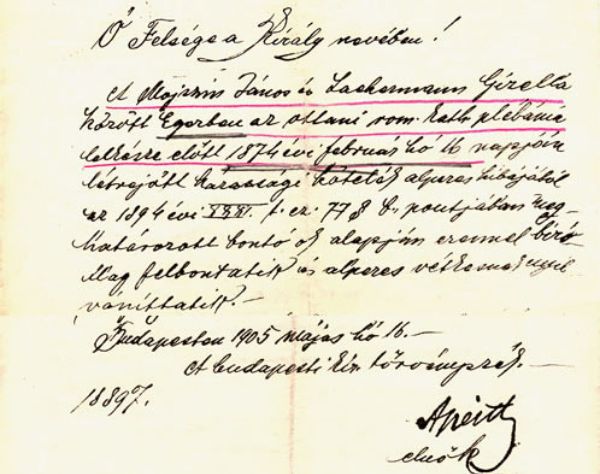 Ő Felsége a Király nevében!
A Mojszin János és Lachermann Gizella
között Egerben az ottani rom. kath. plébánia
lelkésze előtt 1874 évi február hó 16 napján
létrejött házassági kötelék alperes hibájából
az 1894 évi XXXI. t. cz. 77 § b. pontjában meg-
határozott bontó ok alapján ezennel birói-
lag felbontatik és alperes vétkesnek nyil-
váníttatik.-
Budapesten 1905 május hó 16.-
A budapesti kir. törvényszék.-
18897.
elnök